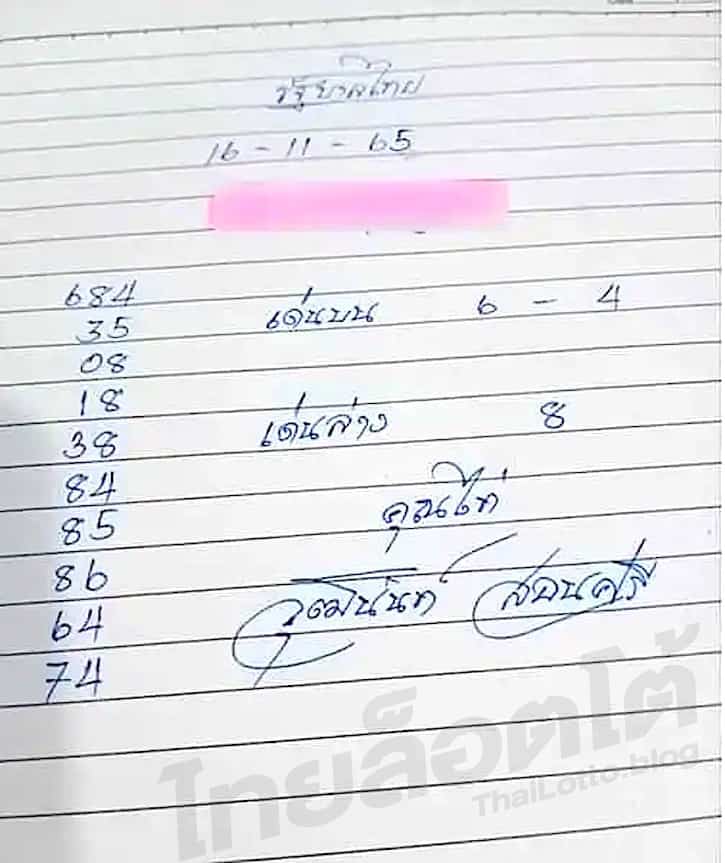 รัฐบาลไทย
16 - 11 - 65
684
35 เด่นบน 6 - 4
08
18
38 เด่นล่าง 8
84
85
86
64
74
วุฒินันท์ สอนศรี
ไทยล็อตโต้
ThaiLotto.blog